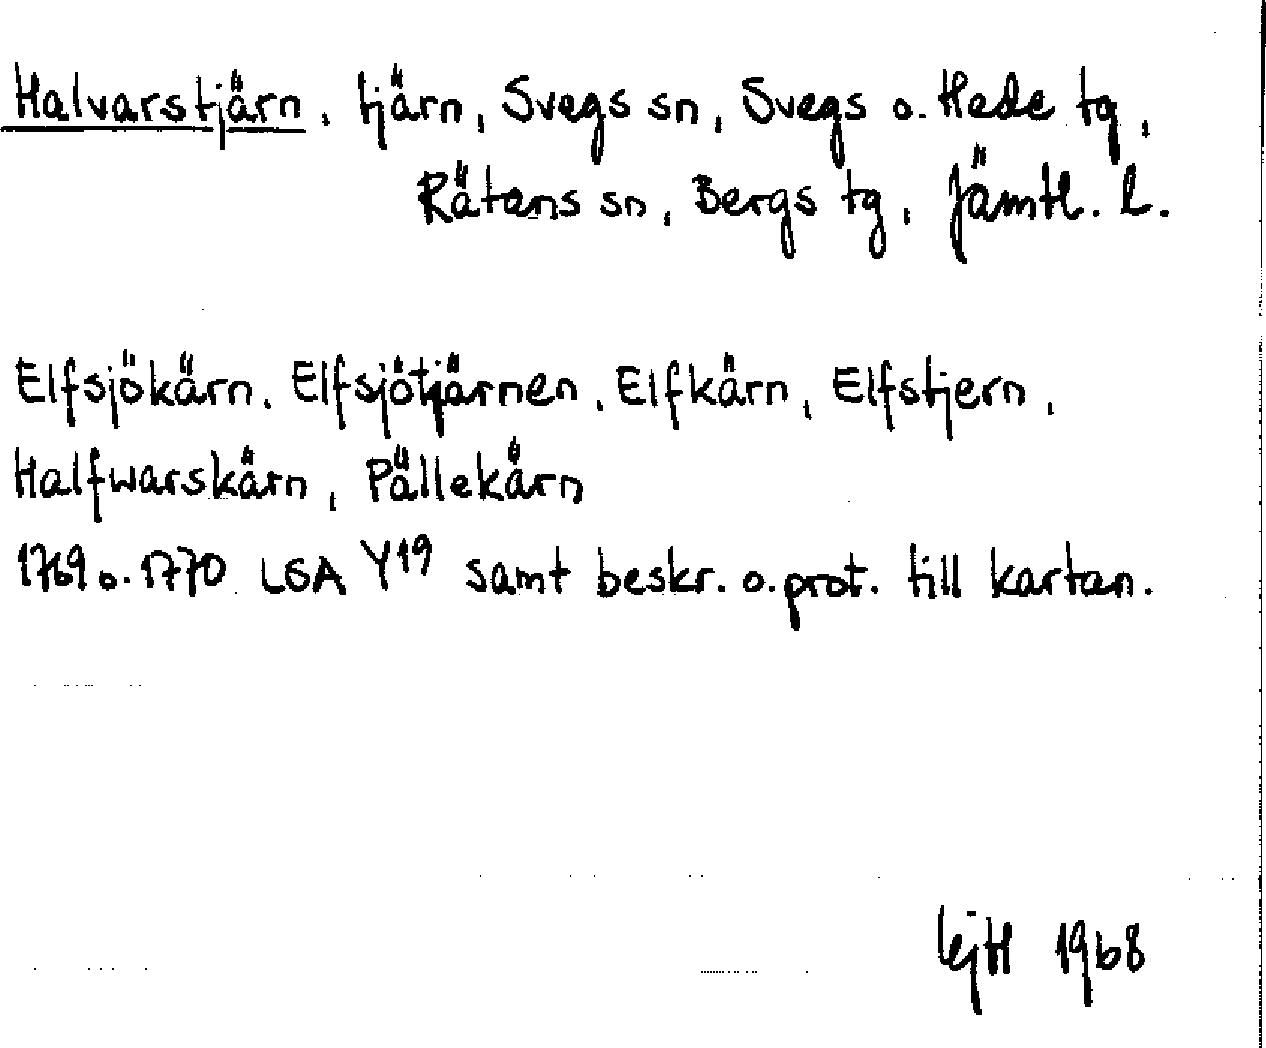 Halvarstjärn, tjärn, Svegs sn, Svegs o. Hede tg,
Rätans sn, Bergs tg, Jämtl. l.
Elfsjökärn, Elfsjötjärnen, Elfkärn, Elfstjern,
Halfwarskärn, Pällekärn
1769 o. 1770 LSA Y19 samt beskr. o. prot. till kartan.
1968